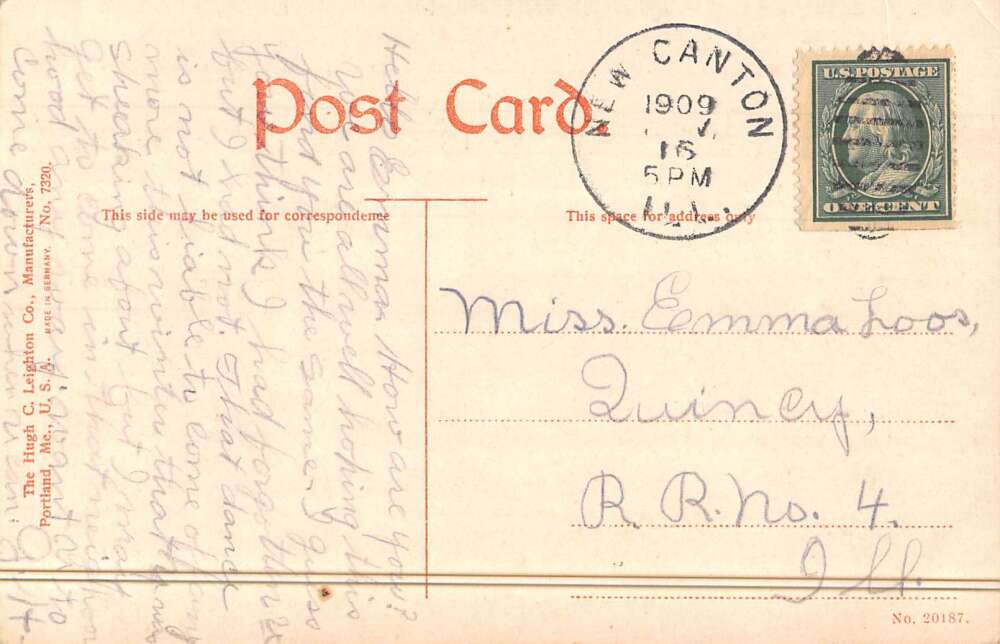 Post Card
NEW CANTON
1909
16
5 PM
ILL.
U.S. POSTAGE
ONE CENT
This side may be used for correspondence
This space for address only
Miss. Emma Loos,
Quincy,
R. R. No. 4.
Ill.
No. 20187.
The Hugh C. Leighton Co., Manufacturers,
Portland, Me., U. S. A. MADE IN GERMANY. No. 7320.
Hello Emma How are you?
We are all well hoping this
find you the same. I guess
you think I had forgotten
but I had not. That dance
is not liable to come off any
more this winter that I was
speaking about but I want
get to come in that neighbor
hood
Come down